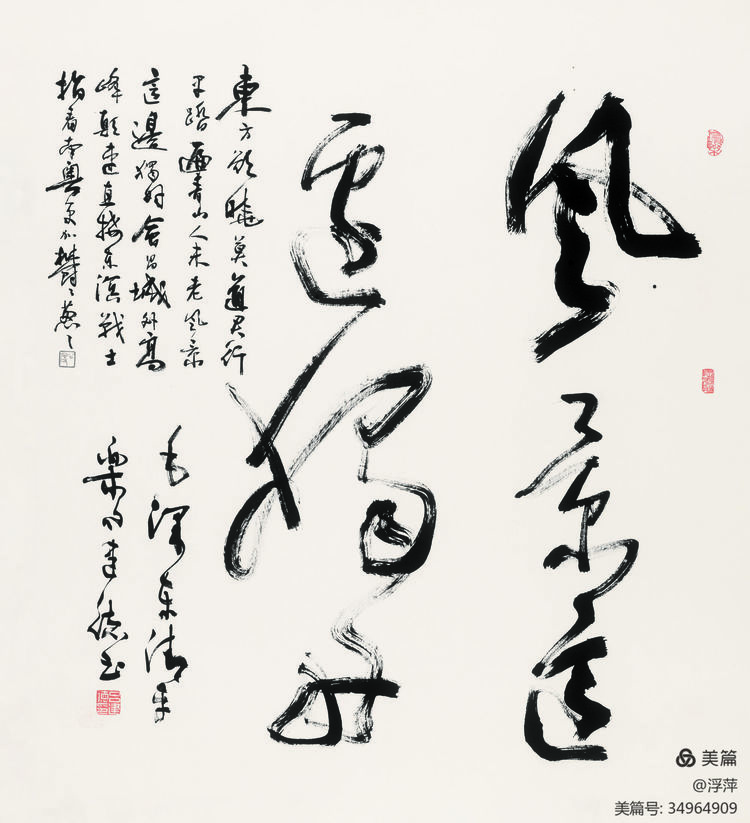 風景這
邊獨好
東方欲曉莫道君行
早踏遍青山人未老風景
這邊獨好會昌城外高
峰顛連直接東溟戰士
指看南粤更加鬱〻葱〻
毛澤東清平
樂句建德书
美篇
@浮萍
美篇号: 34964909